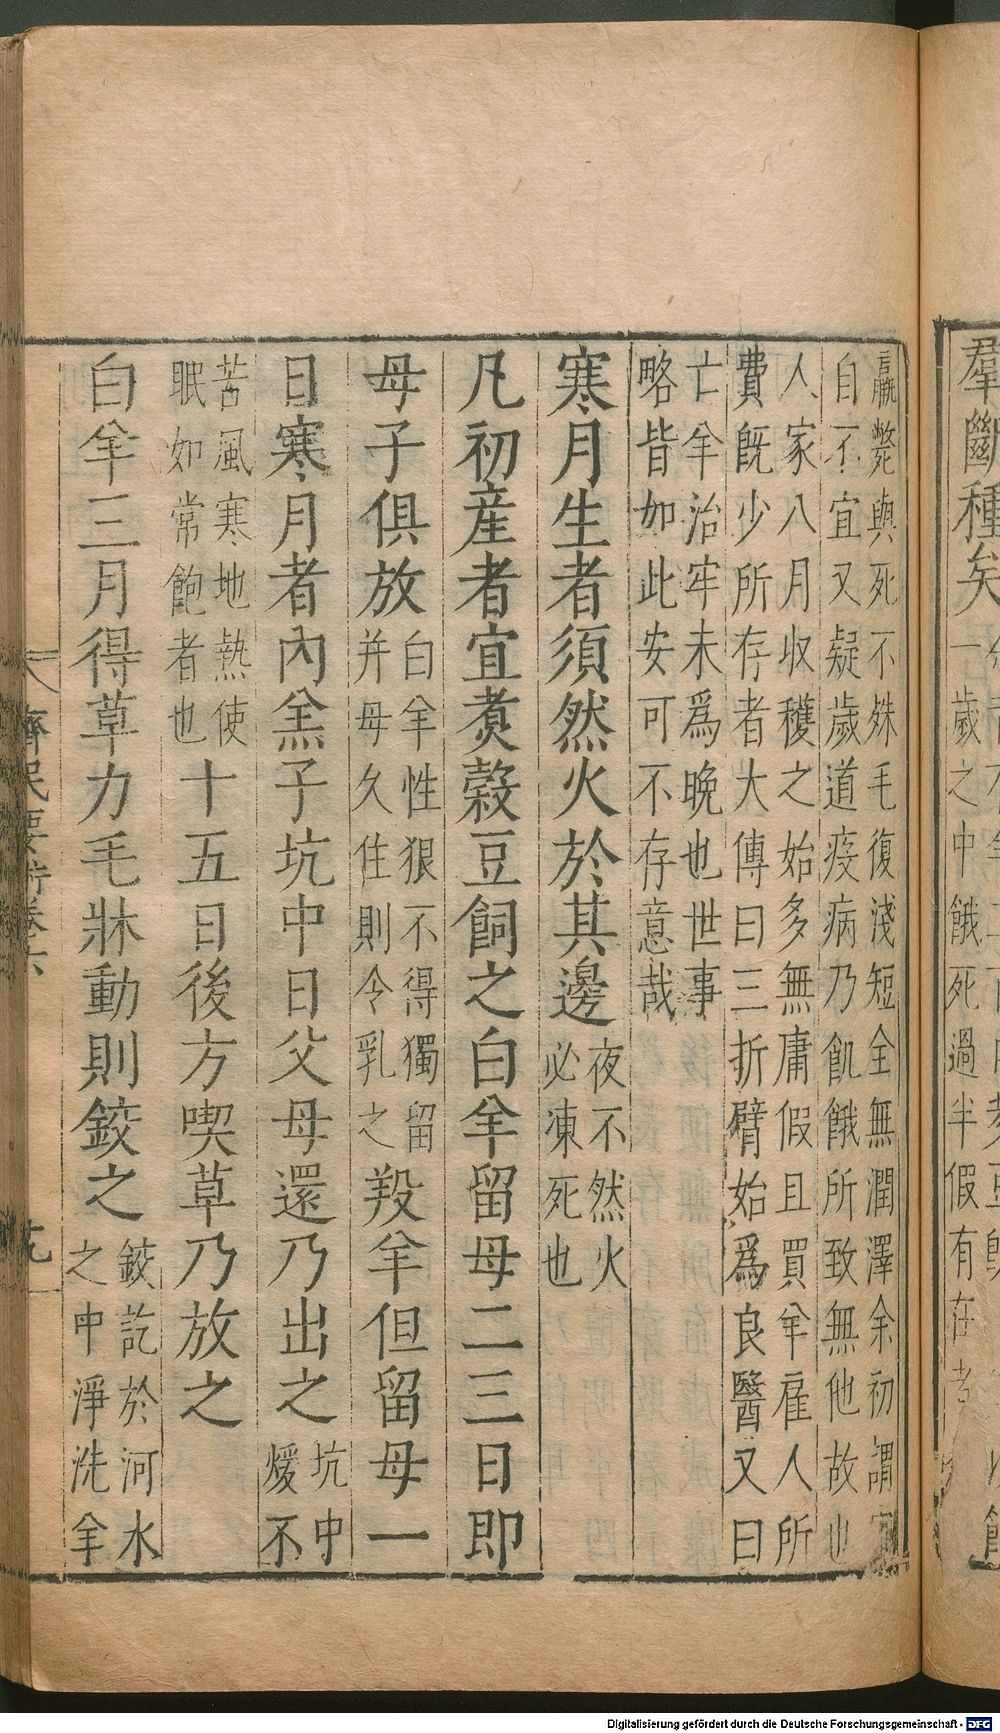 羣斷種矣
一歲之中餓死過半假有在者
羸斃與死不殊毛復淺短全無潤澤余初謂
自不宜又疑歲道疫病乃飢餓所致無他故也
人家八月收穫之始多無庸假且買羊雇人所
費旣少所存者大傳曰三折臂始爲良醫又曰
亡羊治牢未爲晚也世事
略皆如此安可不存意哉
寒月生者須然火於其邊
夜不然火
必凍死也
凡初產者宜煑穀豆飼之白羊留母二三日即
母子俱放
白羊性狠不得獨留
并母久住則令乳之
羖羊但留母一
日寒月者內羔子坑中日父母還乃出之
坑中
煖不
苦風寒地熱使
眠如常飽者也
十五日後方喫草乃放之
白羊三月得草力毛牀動則鉸之
鉸訖於河水
之中淨洗羊
齊民要術卷六
Digitalisierung gefördert durch die Deutsche Forschungsgemeinschaft - DFG